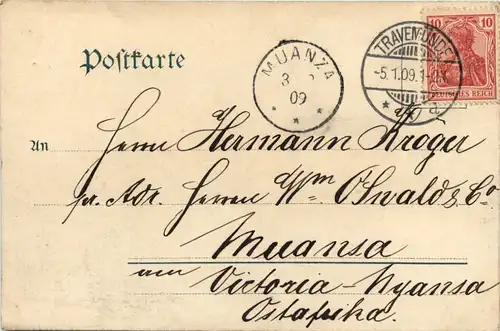 Postkarte
MUANZA
3
09
TRAVEMÜNDE
-5.1.09.1-2N.
* a
10 10
DEUTSCHES REICH
An Herrn Hermann Kroger
pr. Adr. Herren Wm OSwald & Co
Muansa
am Victoria-Nyansa
Ostafrika.